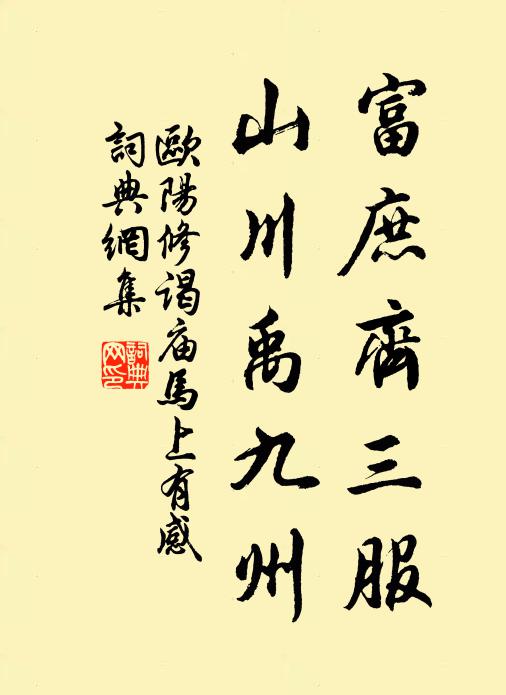 富庶齊三服
山川禹九州
歐陽修谒庙馬上有感
詞典網集
詞典
网印